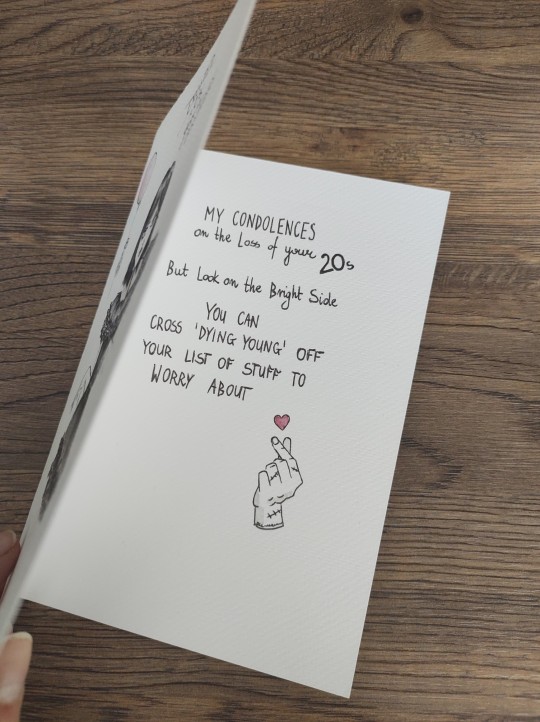 MY CONDOLENCES
on the Loss of your 20s
But Look on the Bright Side
YOU CAN
CROSS 'DYING YOUNG' OFF
YOUR LIST OF STUFF TO
WORRY ABOUT